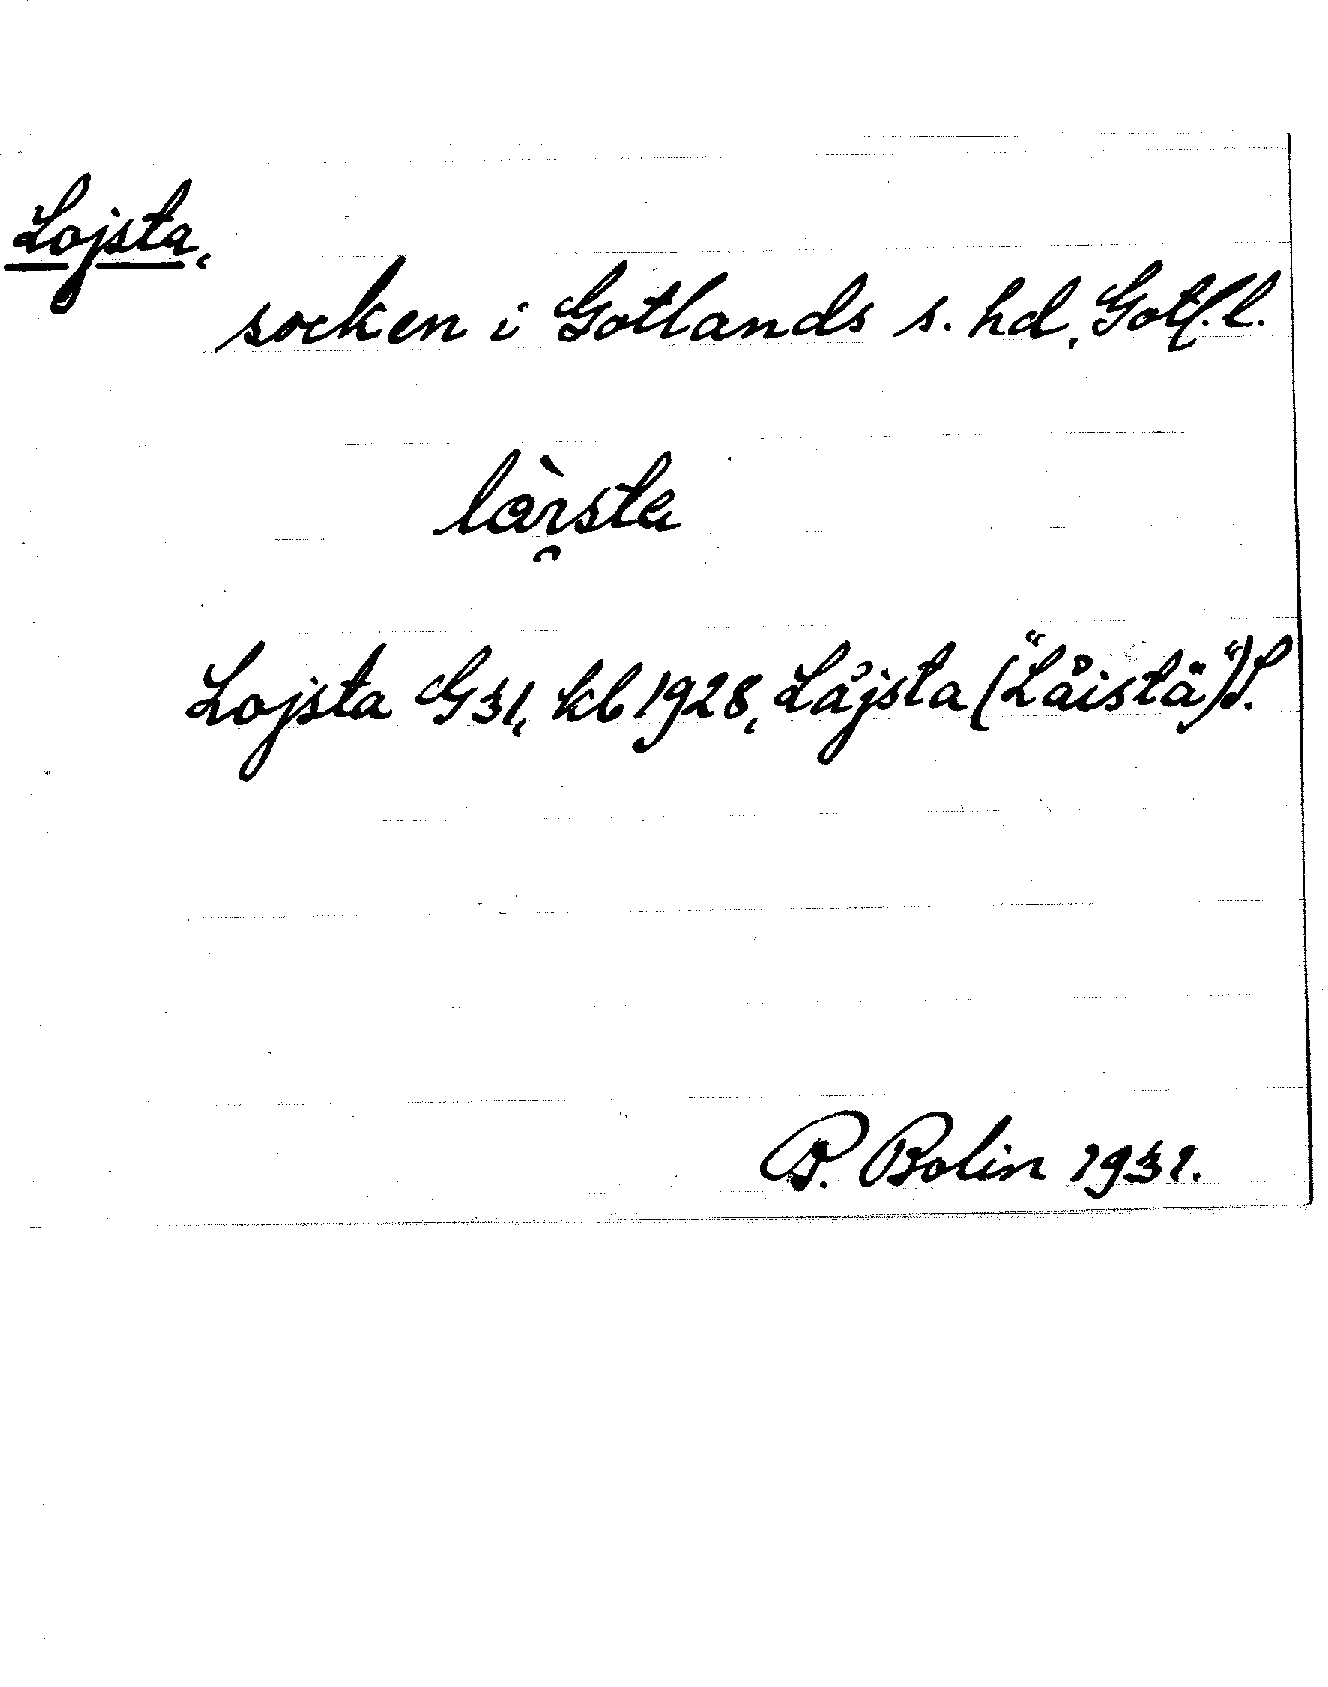 Lojsta,
socken i Gotlands s. hd, Gotl. l.
Lojsta G 31, kb 1928, Låjsta ("Låistä") S.
B. Bolin 1931.